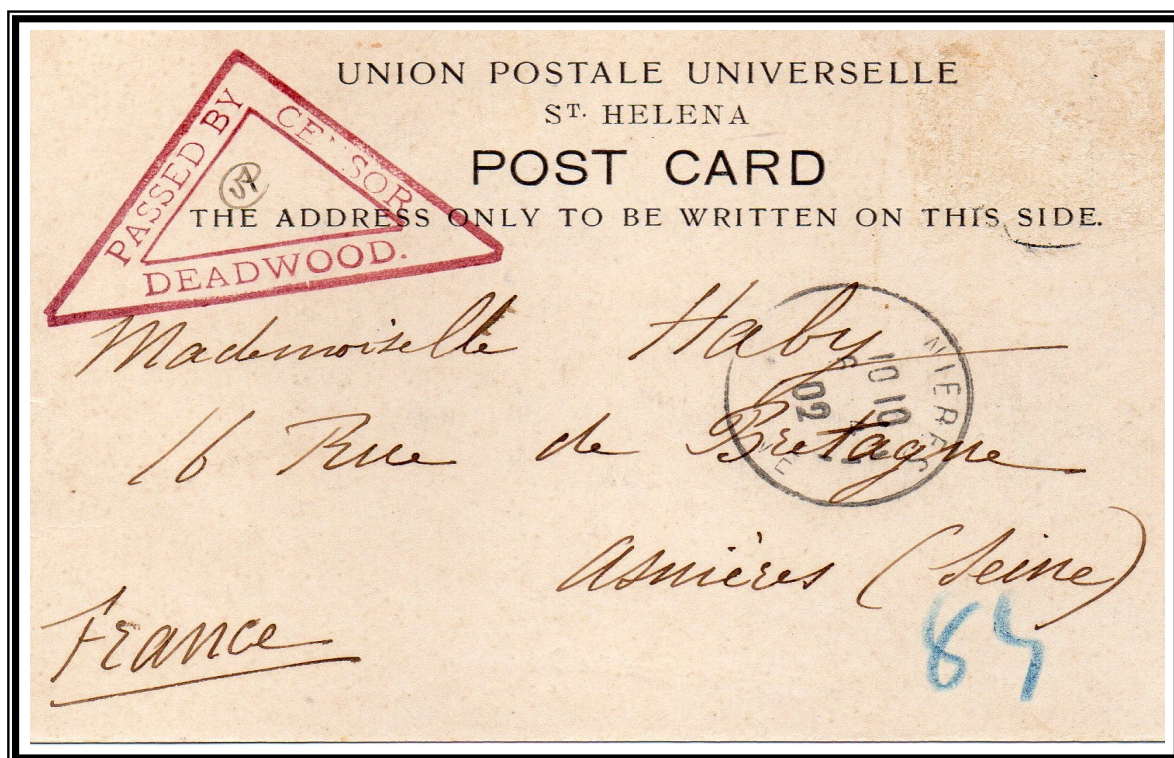 UNION POSTALE UNIVERSELLE
ST. HELENA
POST CARD
THE ADDRESS ONLY TO BE WRITTEN ON THIS SIDE.
PASSED BY
CENSOR
DEADWOOD.
Mademoiselle Haby
16 Rue de Bretagne
Asnières (Seine)
France
10 10
02
84